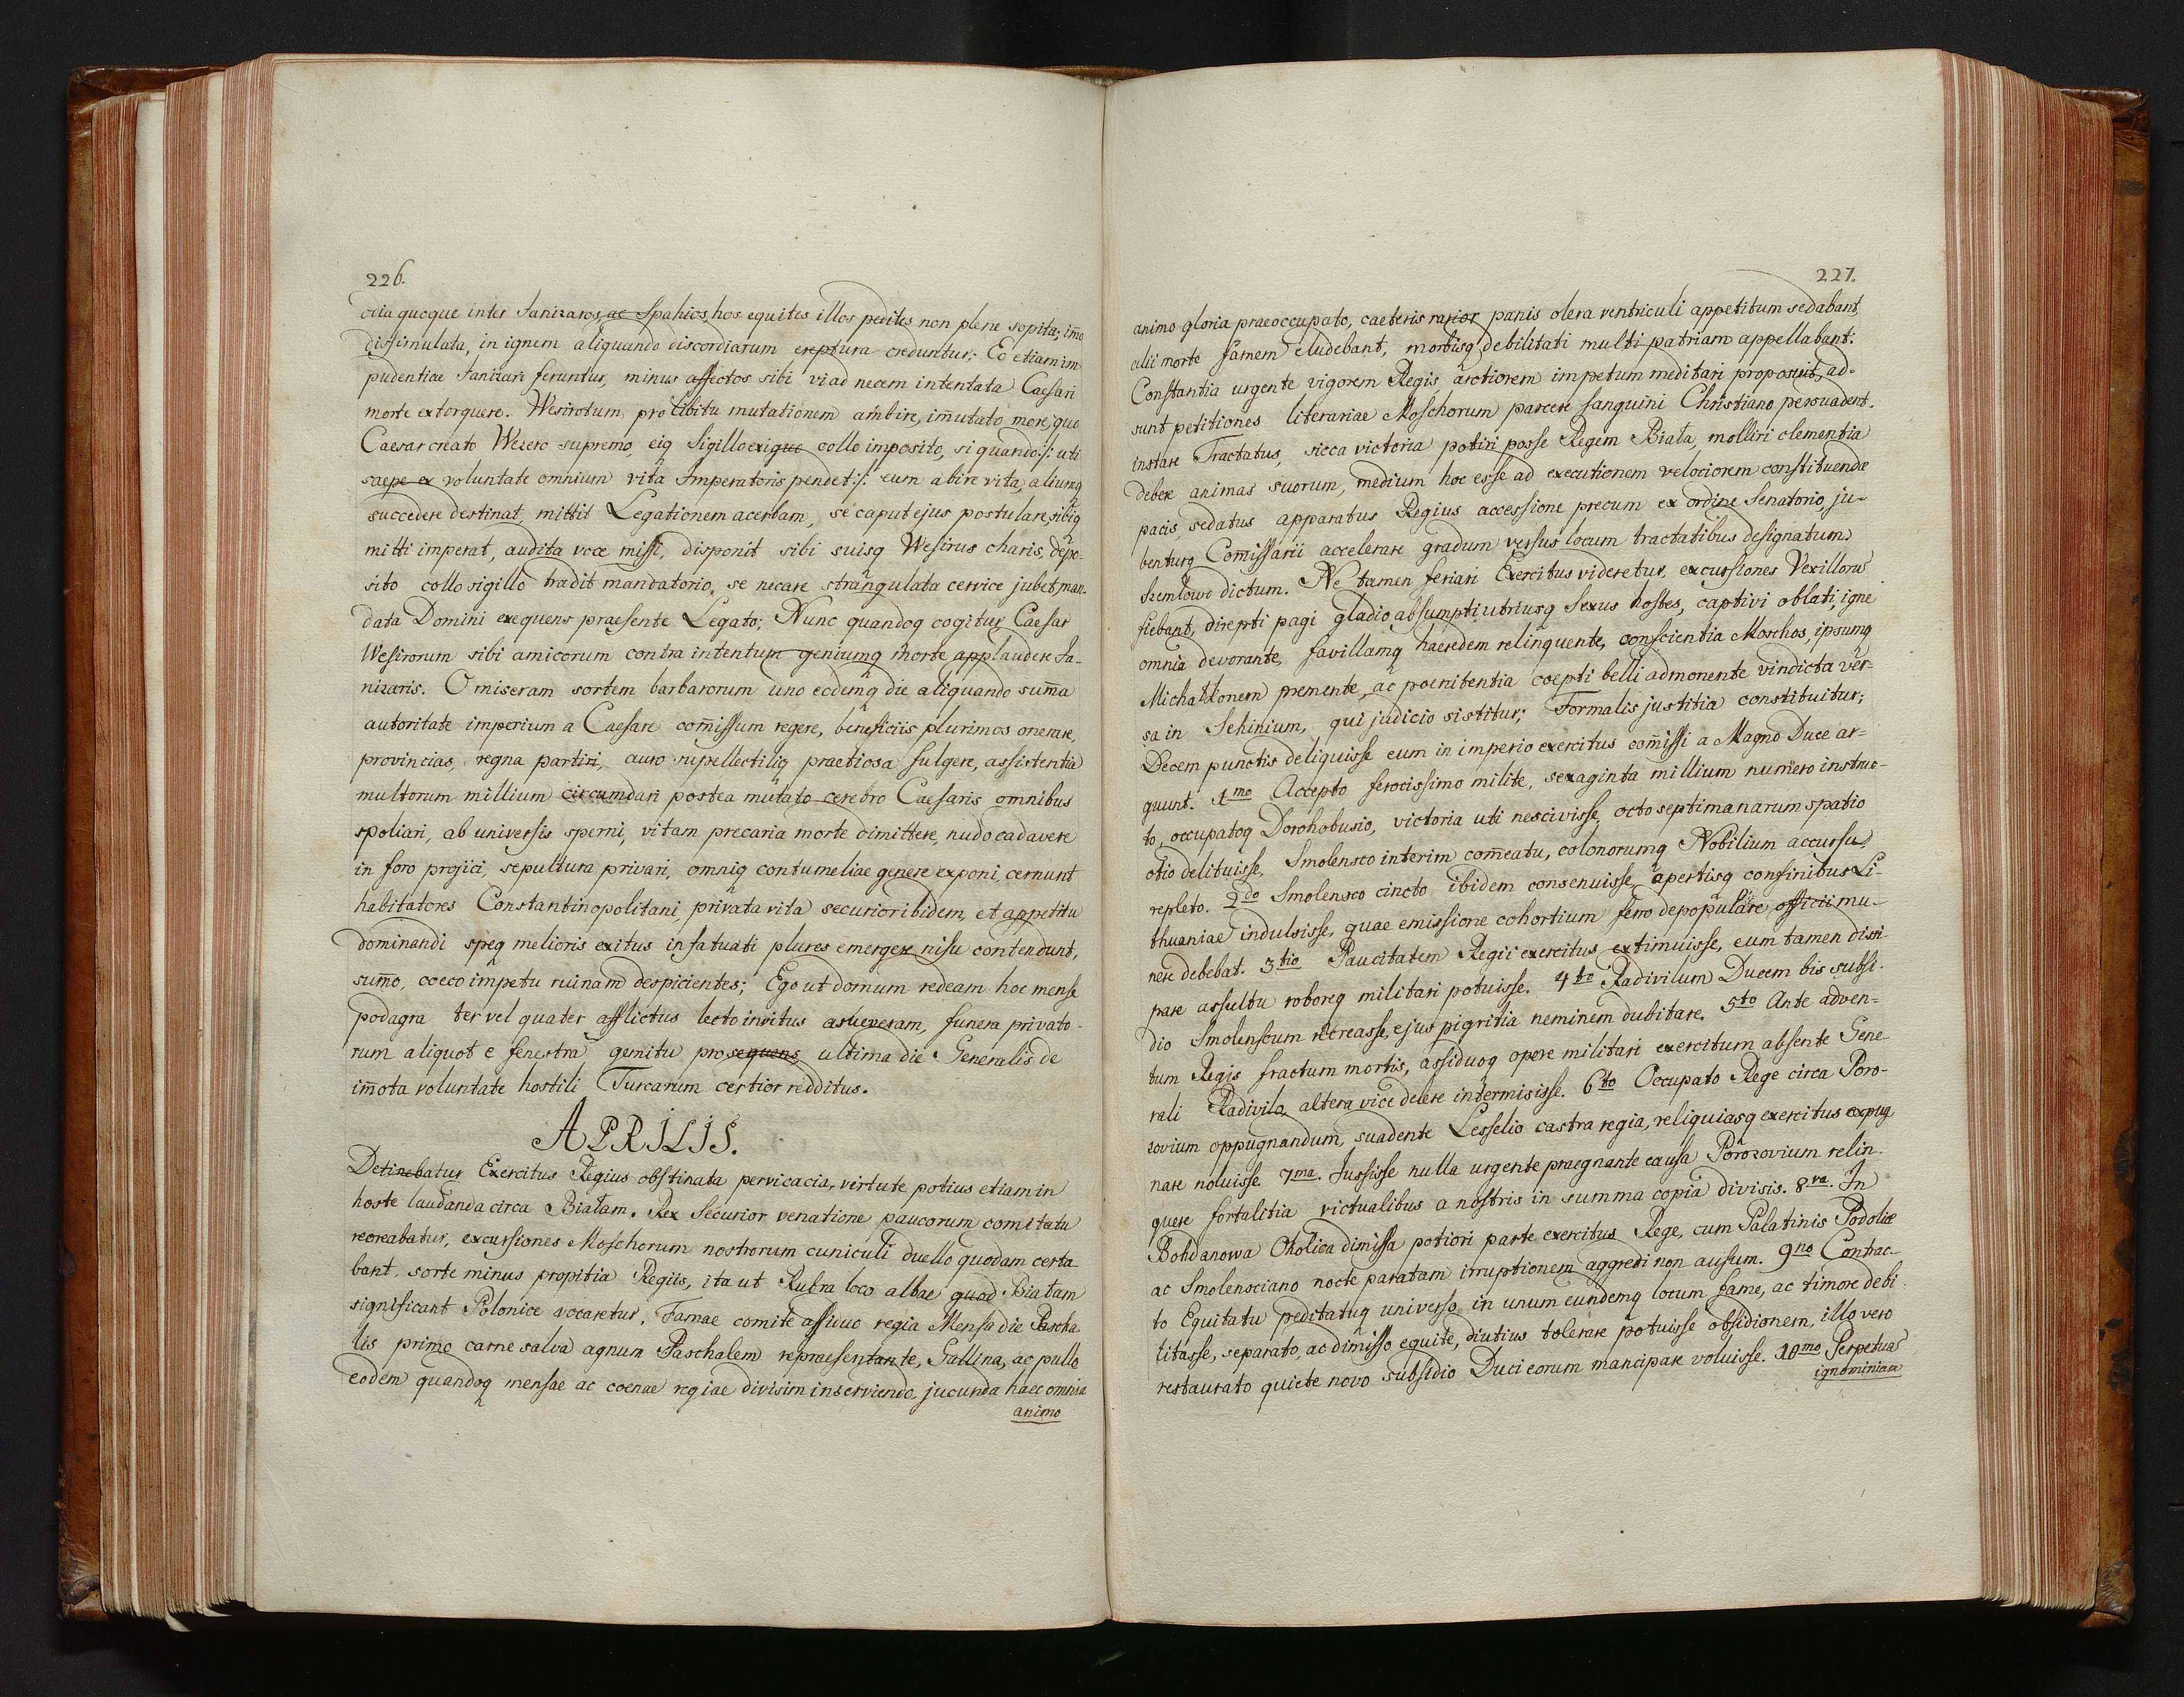 226.
otia quoque inter Janizaros, ac Spahios, hos equites illos pedites non plene sopita; im̄o
dissimulata, in ignem aliquando discordiarum ereptura creduntur; Eo etiam im
pudentiae Janizari feruntur, minus affectos sibi vi ad necem intentata Caesari
morte extorquere. Wesirotum pro libitu mutationem ambire, im̄utato more, quo
Caesar creato Wezero supremo, eiq Sigillo exiguo collo imposito, si quando :/: uti
saepe ex voluntate omnium vita Imperatoris pendet :/: eum abire vita, aliumq
succedere destinat, mittit Legationem acerbam, se caput ejus postulare, sibiq
mitti imperat, audita voce missi, disponit sibi suisq Wesirus charis, depo-
sito collo sigillo tradit mandatorio, se necare strangulata cervice jubet, man-
data Domini exequens praesente Legato; Nunc quandoq cogitur Caesar
Wesirorum sibi amicorum contra intentum geniumq morte applaudere Ja-
nizaris. O miseram sortem barbarorum uno eodemq die aliquando sum̄a
autoritate imperium a Caesare com̄issum regere, beneficiis plurimos onerare,
provincias, regna partiri, auro supellectiliq praetiosa fulgere, assistentia
multorum millium circumdari postea mutato cerebro Caesaris omnibus
spoliari, ab universis sperni, vitam precaria morte dimittere, nudo cadavere
in foro projici, sepultura privari, omniq contumeliae genere exponi, cernunt
habitatores Constantinopolitani, privata vita securior ibidem, et appetitu
dominandi speq melioris exitus infatuati plures emergere nisu contendunt,
sum̄o, coeco impetu ruinam despicientes; Ego ut domum redeam hoc mense
podagra ter vel quater afflictus lecto invitus asueveram, funera privato-
rum aliquot e fenestra gemitu prosequens ultima die Generalis de
im̄ota voluntate hostili Turcarum certior redditus.
APRILIS.
Detinebatur Exercitus Regius obstinata pervicacia, virtute potius etiam in
hoste laudanda circa Białam. Rex Securior venatione paucorum comitatu
recreabatur, excursiones Moschorum nostrorum cuniculi duello quodam certa
bant, sorte minus propitia Regiis, ita ut Rubra loco albae quod Białam
significant Polonice vocaretur. Famae comite assiduo regia Mensa die Pascha
lis primo carne salva agnum Paschalem repraesentante, Gallina, ac pullo
eodem quandoq mensae ac coenae regiae divisim inserviendo, jucunda haec omnia
animo
227.
animo gloria praeoccupato, caeteris rarior panis olera ventriculi appetitum sedabant,
alii morte famem eludebant, morbisq debilitati multi patriam appellabant.
Constantia urgente vigorem Regis arctiorem impetum meditari proposuit, ad-
sunt petitiones literariae Moschorum parcere sanguini Christiano persuadent.
instare Tractatus, sicca victoria potiri posse Regem Biała, molliri clementia
debere animas suorum, medium hoc esse ad executionem velociorem constituendae
pacis, sedatus apparatus Regius accessione precum ex ordine Senatorio, ju-
benturq Com̄issarii accelerare gradum versus locum tractatibus designatum
Szemlowo dictum. Ne tamen feriari Exercitus videretur, excursiones Vexillorū
fiebant, direpti pagi gladio absumpti utriusq Sexus hostes, captivi oblati, igne
omnia devorante, favillamq haeredem relinquente, conscientia Moschos, ipsumq
Michałkonem premente, ac poenitentia coepti belli admonente vindicta ver-
sa in Sehinium, qui judicio sistitur; Formalis justitia constituitur;
Decem punctis deliquisse eum in imperio exercitus com̄issi a Magno Duce ar-
guunt. 1mo Accepto ferocissimo milite, sexaginta millium numero instruc-
to, occupatoq Dorohobusio, victoria uti nescivisse, octo septimanarum spatio
otio delituisse, Smolensco interim com̄eatu, colonorumq Nobilium accursu
repleto. 2do Smolensco cincto ibidem consenuisse, apertisq confinibus Li-
thuaniae indulsisse, quae emissione cohortium ferro depopulare officii mu-
nere debebat. 3tio Paucitatem Regii exercitus extimuisse, eum tamen dissi-
pare assultu roboreq militari potuisse. 4to Radivilum Ducem bis subsi-
dio Smolenscum recreasse, ejus pigritia neminem dubitare. 5to Ante adven-
tum Regis fractum mortis, assiduoq opere militari exercitum absente Gene
rali Radivilo, altera vice delere intermisisse. 6to Occupato Rege circa Poro-
zovium oppugnandum, suadente Lesselio castra regia, reliquiasq exercitus expug
nare noluisse. 7ma. Jussisse nulla urgente praegnante causa Porozovium relin-
quere fortalitia victualibus a nostris in summa copia divisis. 8va. In
Bohdanowa Okolica dimissa potiori parte exercitus Rege, cum Palatinis Podoliae
ac Smolensciano nocte paratam irruptionem aggredi non ausum. 9no Contrac-
to Equitatu peditatuq universo in unum eundemq locum fame, ac timore debi-
litasse, separato, ac dimisso equite, diutius tolerare potuisse obsidionem, illo vero
restaurato quiete novo subsidio Duci eorum mancipare voluisse. 10mo Perpetua
ignominiae